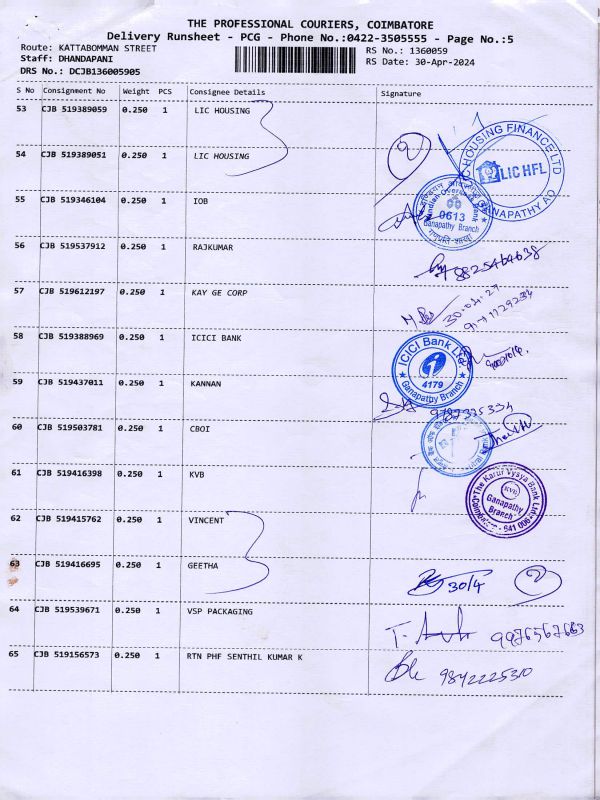 THE PROFESSIONAL COURIERS, COIMBATORE
Delivery Runsheet - PCG - Phone No.:0422-3505555 - Page No.:5
Route: KATTABOMMAN STREET RS No.: 1360059
Staff: DHANDAPANI RS Date: 30-Apr-2024
DRS No.: DCJB136005905
S No Consignment No Weight PCS Consignee Details Signature
53 CJB 519389059 0.250 1 LIC HOUSING
54 CJB 519389051 0.250 1 LIC HOUSING
2
HOUSING FINANCE LTD
LIC HFL
GANAPATHY AO
55 CJB 519346104 0.250 1 IOB
Indian Overseas Bank
0613
Ganapathy Branch
56 CJB 519537912 0.250 1 RAJKUMAR
8825464638
57 CJB 519612197 0.250 1 KAY GE CORP
58 CJB 519388969 0.250 1 ICICI BANK
ICICI Bank Ltd.
4179
Ganapathy Branch
59 CJB 519437011 0.250 1 KANNAN
60 CJB 519503781 0.250 1 CBOI
61 CJB 519416398 0.250 1 KVB
The Karur Vysya Bank Ltd.
KVB
Ganapathy
Branch
Coimbatore - 641 006
62 CJB 519415762 0.250 1 VINCENT
63 CJB 519416695 0.250 1 GEETHA
30/4 2
64 CJB 519539671 0.250 1 VSP PACKAGING
9976567663
65 CJB 519156573 0.250 1 RTN PHF SENTHIL KUMAR K
9842225310